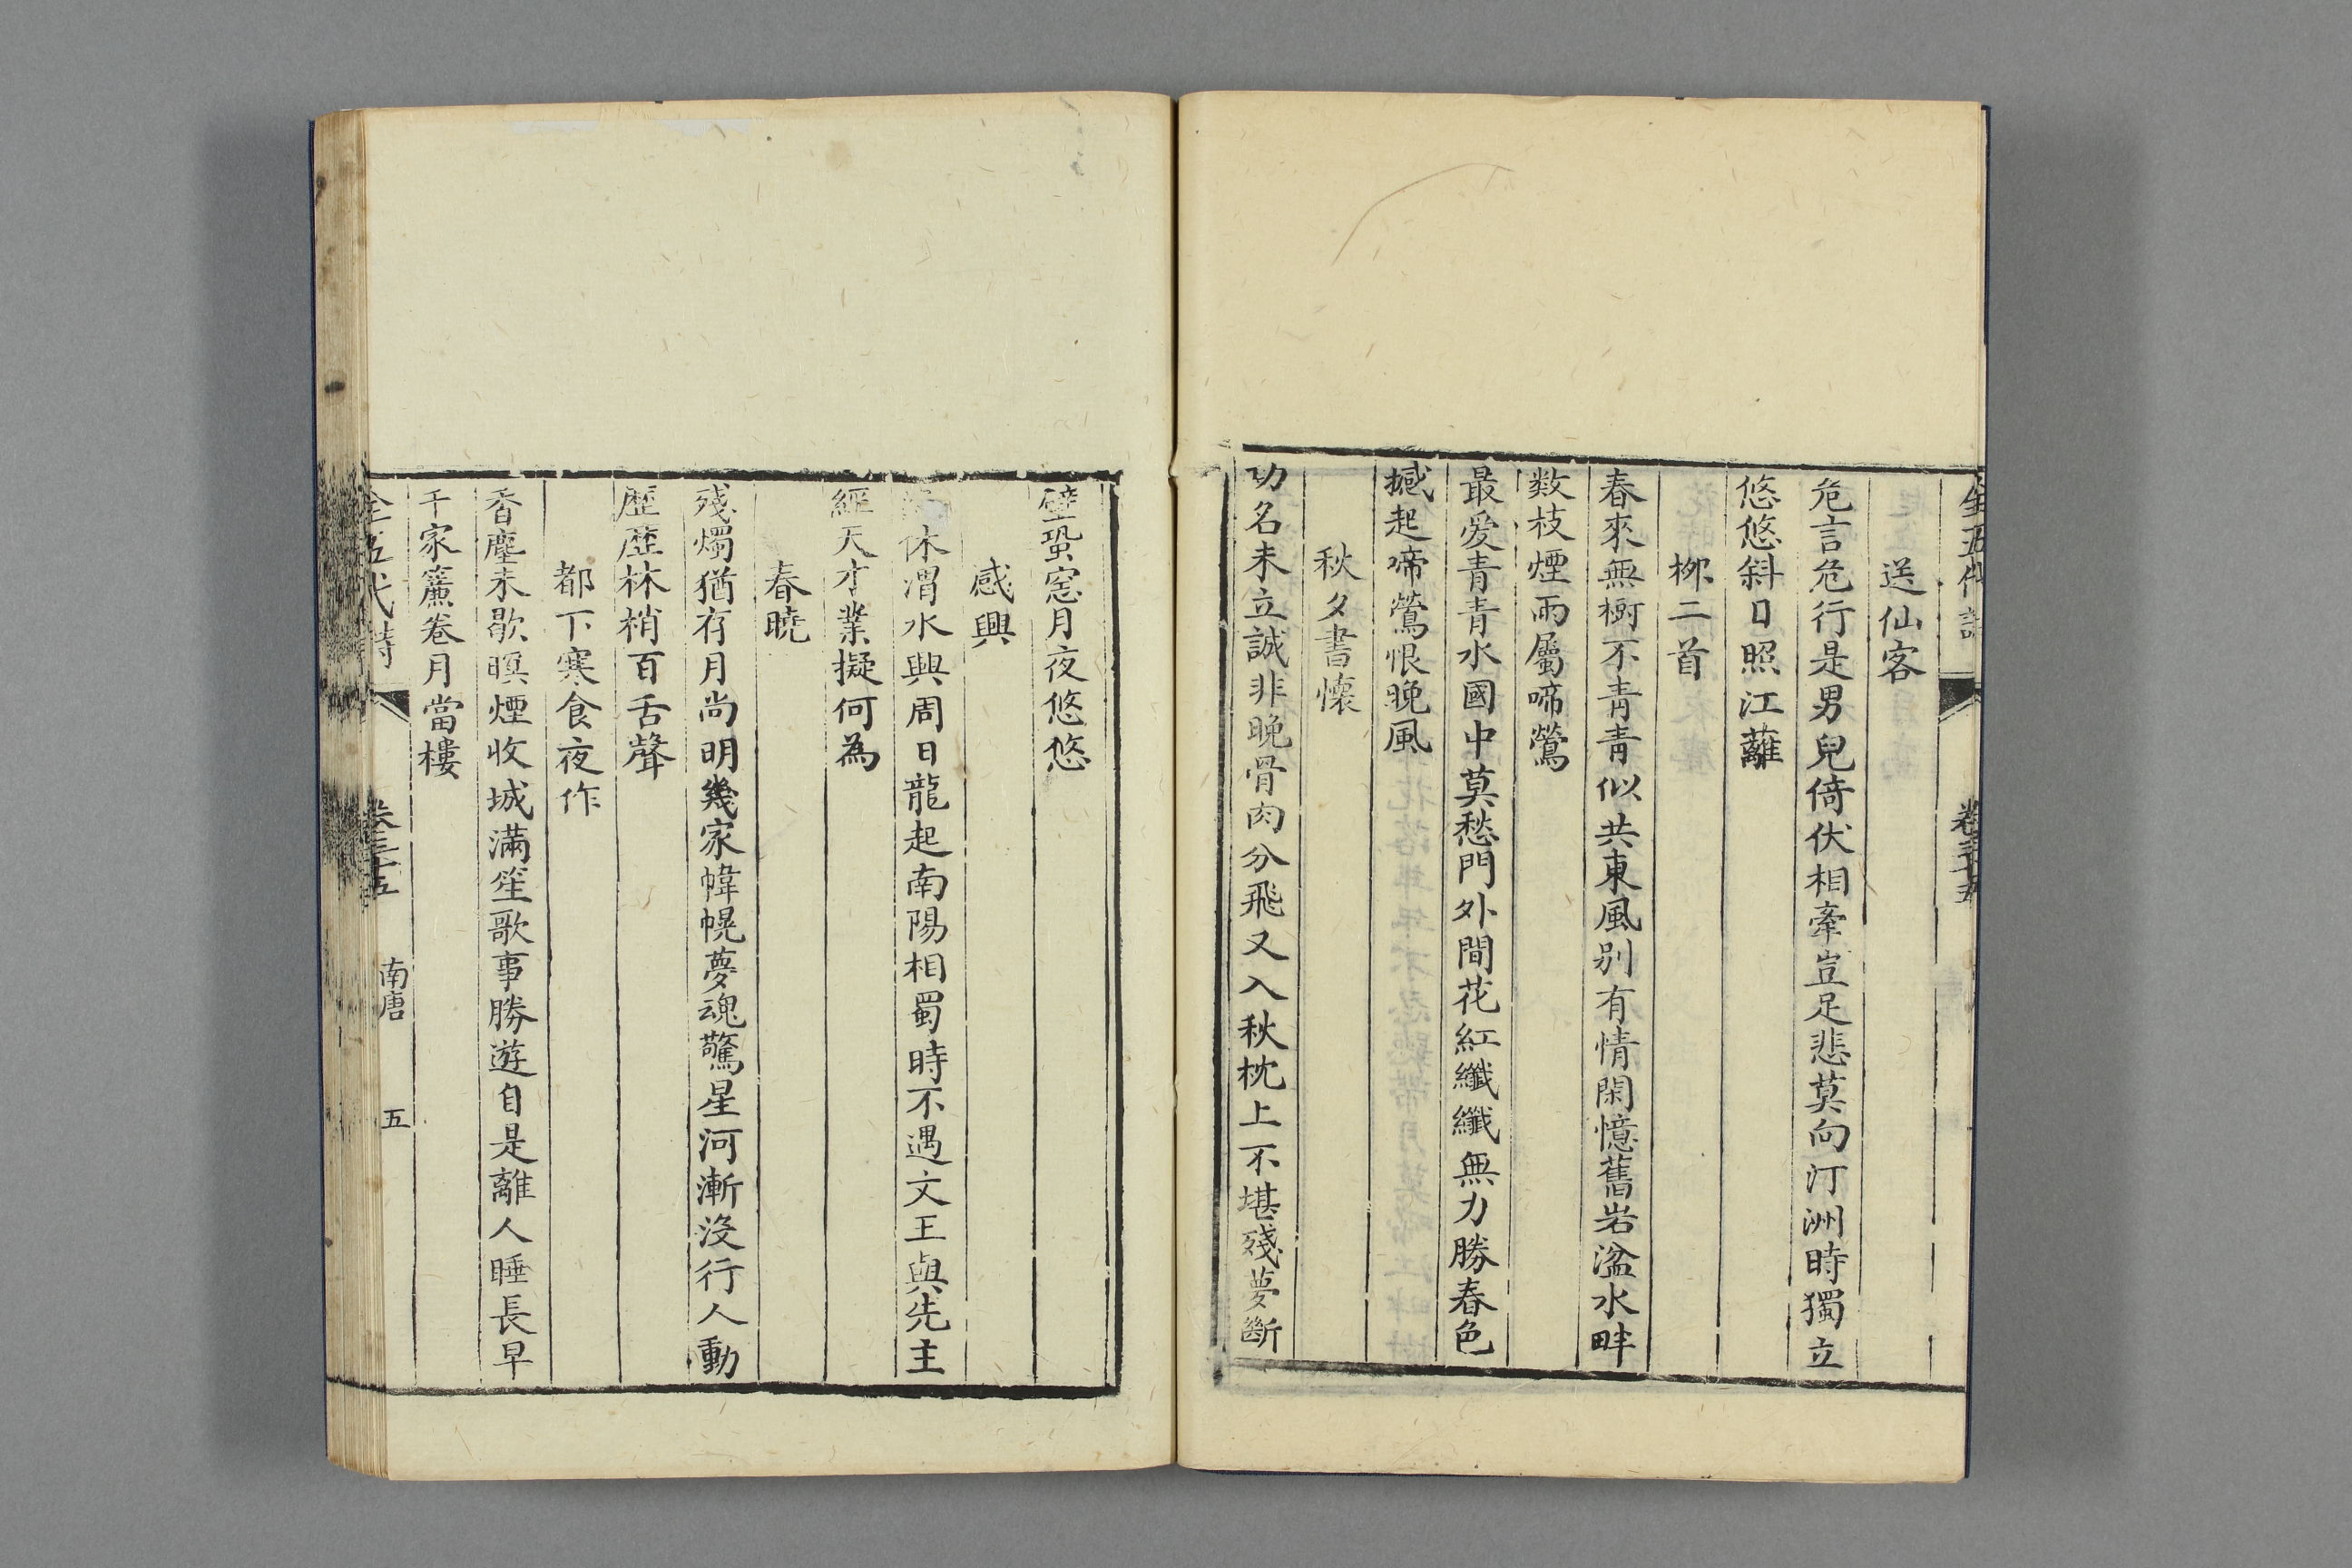 全五代詩 卷三十五
送仙客
危言危行是男兒倚伏相牽豈足悲莫向汀洲時獨立
悠悠斜日照江蘺
柳二首
春來無樹不青青似共東風别有情閑憶舊岩湓水畔
数枝煙雨屬啼鶯
最爱青青水國中莫愁門外間花紅纖纖無力勝春色
撼起啼鶯恨晚風
秋夕書懷
功名未立誠非晚骨肉分飛又入秋枕上不堪殘夢斷
壁蛩窓月夜悠悠
感興
休渭水興周日龍起南陽相蜀時不遇文王與先主
經天才業擬何為
春曉
殘燭猶存月尚明幾家幃幌夢魂驚星河漸沒行人動
歷歷林梢百舌聲
都下寒食夜作
香塵未歇暝煙收城滿笙歌事勝遊自是離人睡長早
千家簾卷月當樓
全五代詩 卷三十五 南唐 五